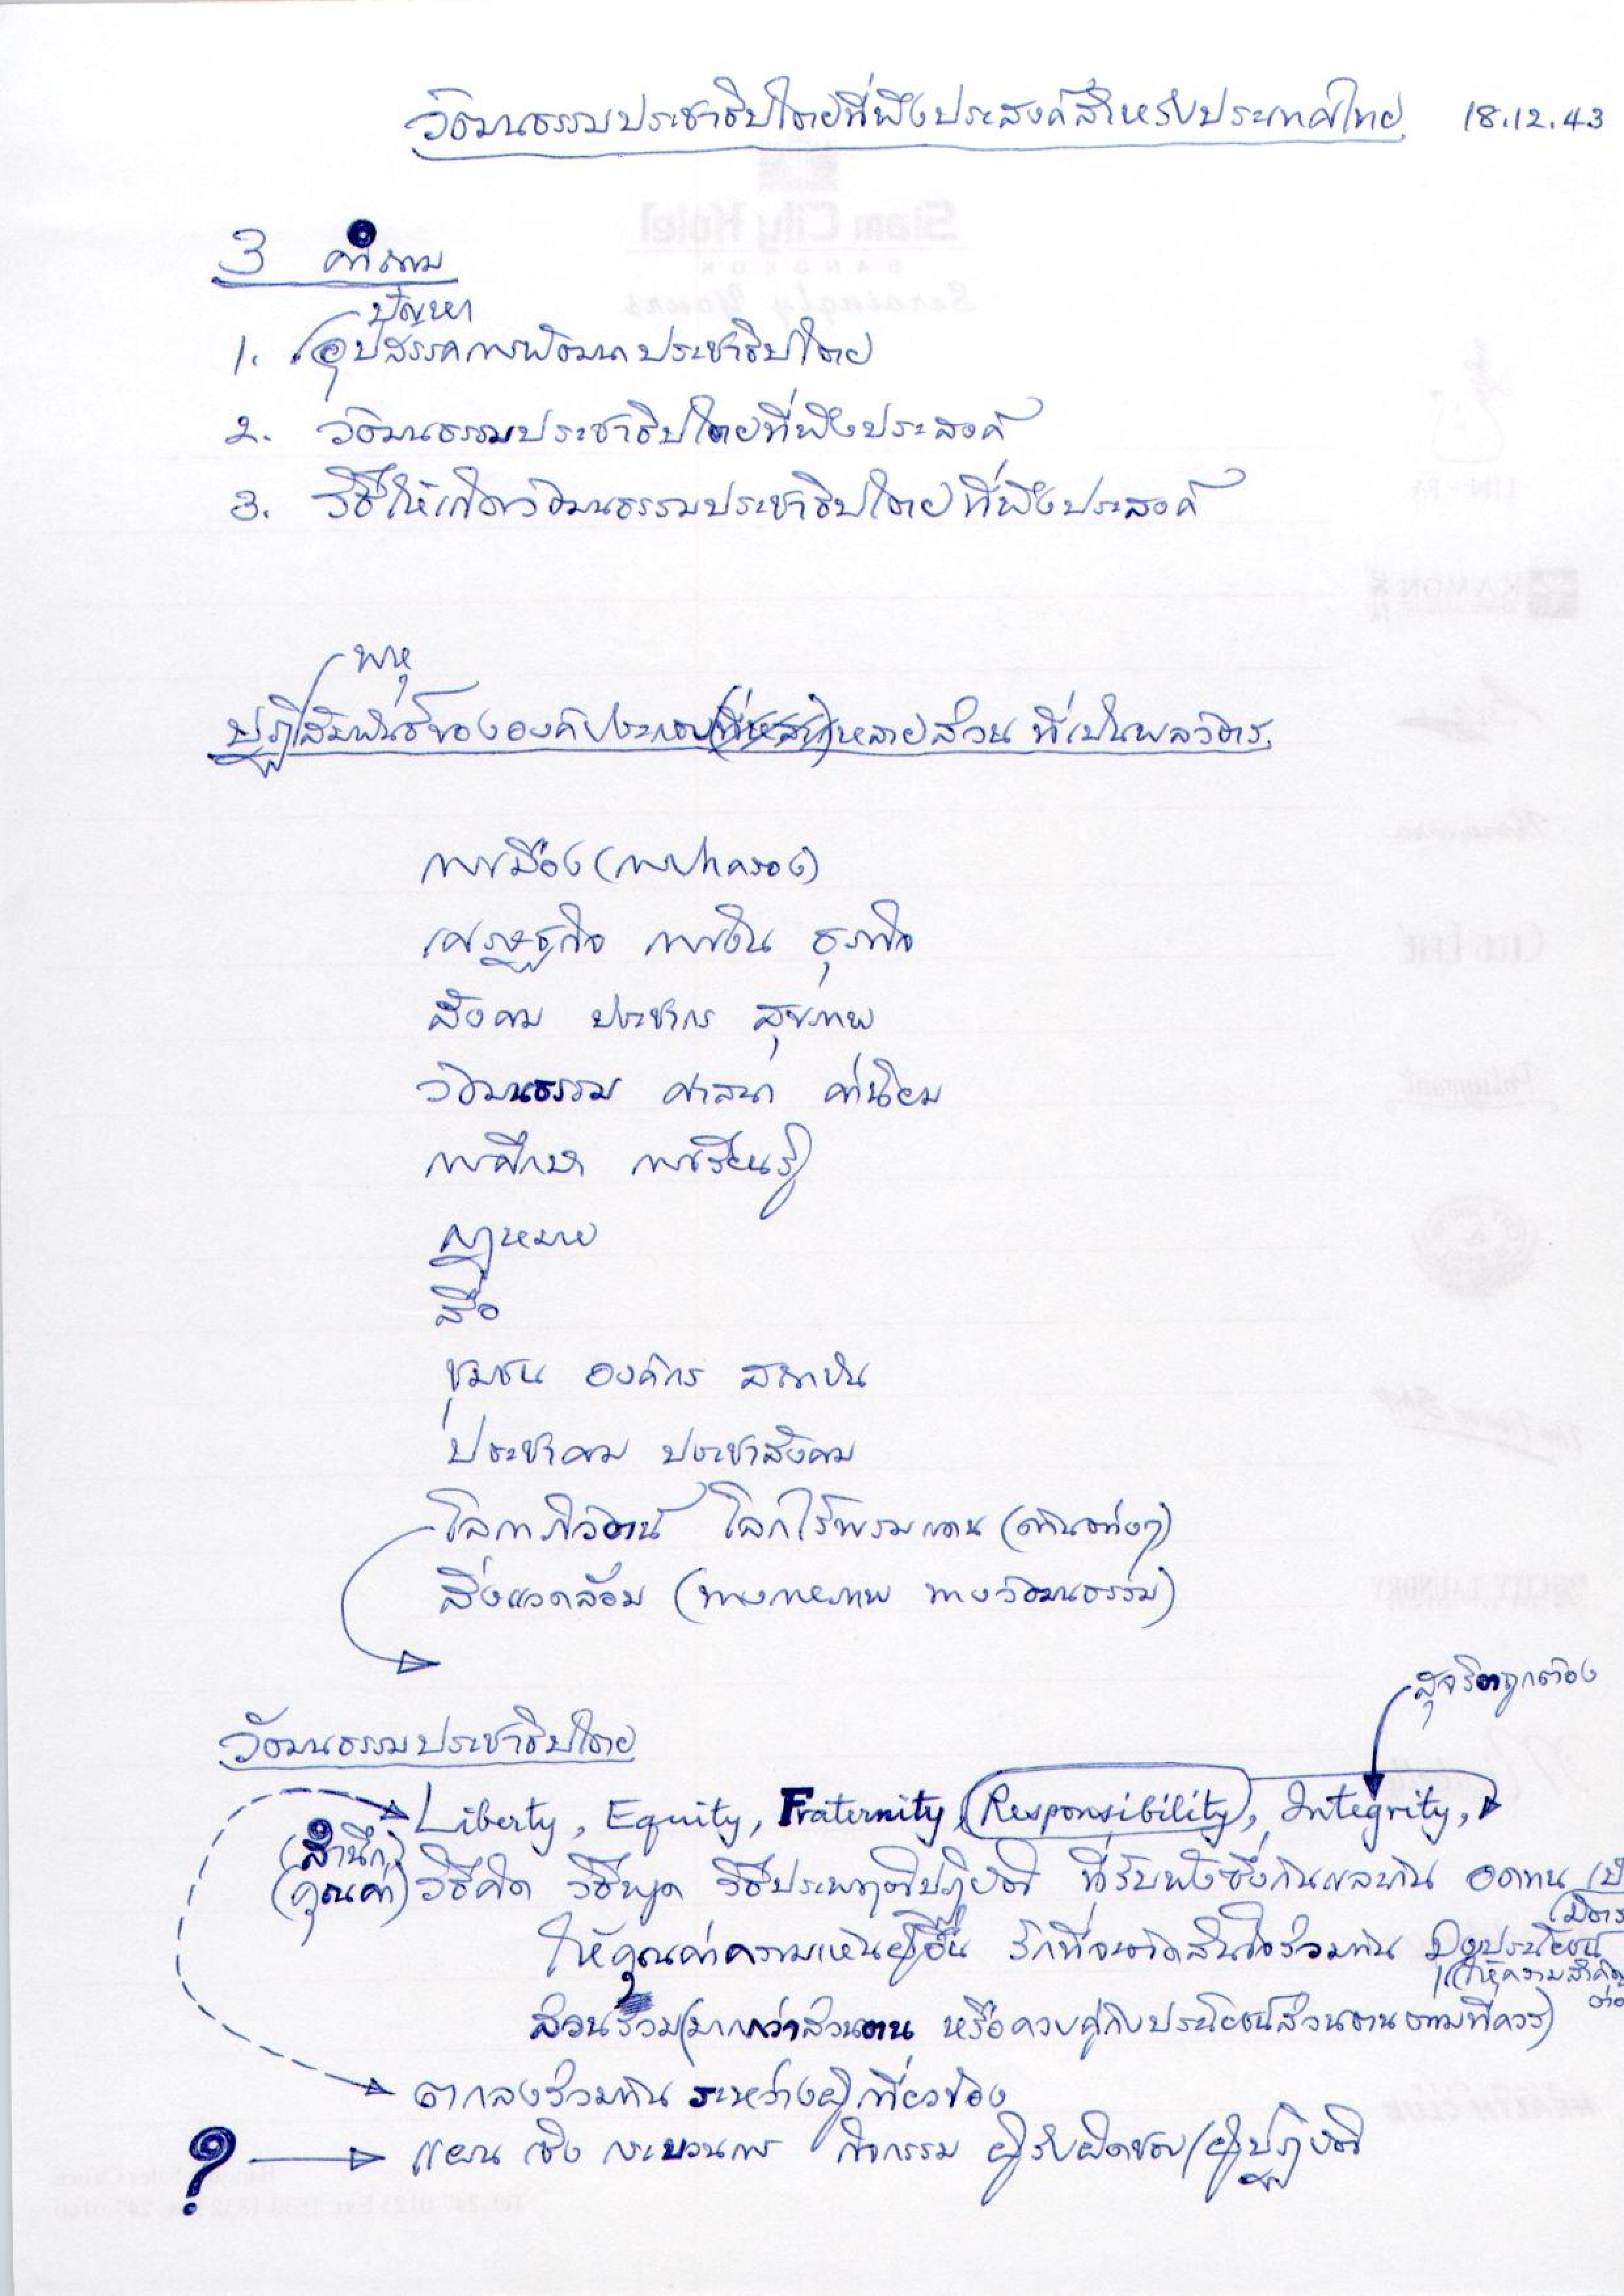 วัฒนธรรมประชาธิปไตยที่พึงประสงค์สำหรับประเทศไทย 18.12.43
Siam City Hotel
BANGKOK
3 คำถาม
ปัญหา
1. อุปสรรคการพัฒนาประชาธิปไตย
2. วัฒนธรรมประชาธิปไตยที่พึงประสงค์
3. วิธีให้เกิดวัฒนธรรมประชาธิปไตยที่พึงประสงค์
พหุ
ปฏิสัมพันธ์ขององค์ประกอบหลายส่วน ที่เป็นพลวัตร
การเมือง (การปกครอง)
เศรษฐกิจ การเงิน ธุรกิจ
สังคม ประชากร สุขภาพ
วัฒนธรรม ศาสนา ค่านิยม
การศึกษา การเรียนรู้
กฎหมาย
สื่อ
ชุมชน องค์กร สถาบัน
ประชาคม ประชาสังคม
โลกาภิวัตน์ โลกไร้พรมแดน (ด้านต่างๆ)
สิ่งแวดล้อม (ทางกายภาพ ทางวัฒนธรรม)
สุจริตถูกต้อง
วัฒนธรรมประชาธิปไตย
Liberty, Equity, Fraternity, Responsibility, Integrity,
(สำนึก)
(คุณค่า) วิธีคิด วิธีพูด วิธีประพฤติปฏิบัติ ที่รับฟังซึ่งกันและกัน อดทน
ให้คุณค่าความเห็นผู้อื่น รักที่จะตัดสินใจร่วมกัน มุ่งประโยชน์
(ให้ความสำคัญ
ส่วนรวม (มากกว่าส่วนตน หรือควบคู่กับประโยชน์ส่วนตนตามที่ควร)
ตกลงร่วมกัน ระหว่างผู้เกี่ยวข้อง
? แผน เชิง กระบวนการ กิจกรรม ผู้รับผิดชอบ/ผู้ปฏิบัติ